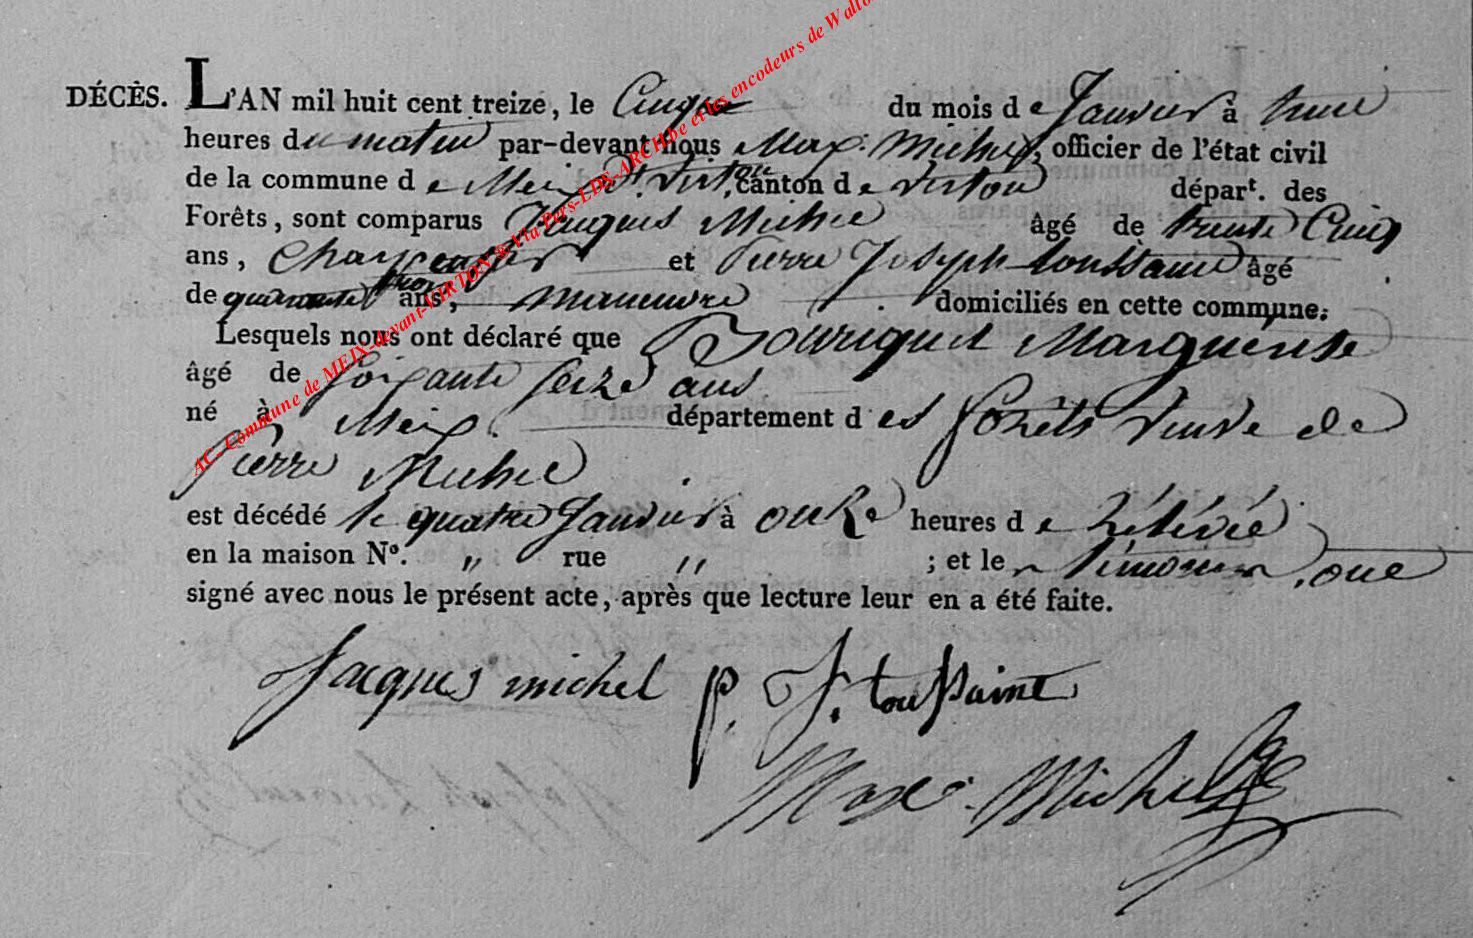 DÉCÈS. L'AN mil huit cent treize, le Cinq du mois de Janvier à
heures du matin par-devant nous Max. Michel, officier de l'état civil
de la commune de Meix dt. Virton, canton de Virton départ. des
Forêts, sont comparus Jacques Michel âgé de trente Cinq
ans, Charpentier et Pierre Joseph toussaint âgé
de quarante trois ans, manœuvre domiciliés en cette commune.
Lesquels nous ont déclaré que Bouriquet Marguerite
âgé de Soixante Seize ans
né à Meix département des forêts veuve de
Pierre Michel
est décédé le quatre Janvier à onze heures de relevée
en la maison No. ,, rue ,, ; et les témoins ont
signé avec nous le présent acte, après que lecture leur en a été faite.
Jacques michel p. J. toussaint
Max. Michel
AC. Commune de MEIX-devant-VIRTON © Via Pers-LDS-ARCH.be et les encodeurs de Wallo